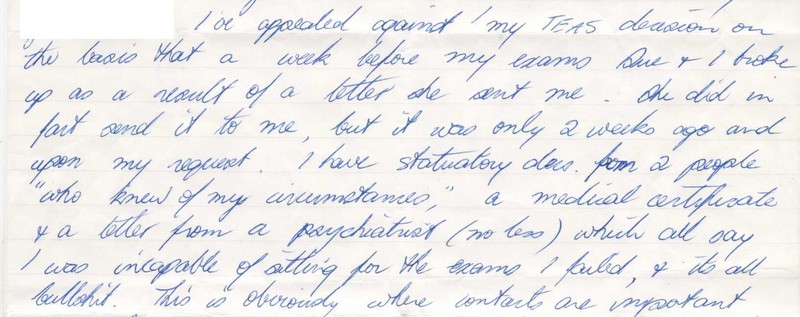 I've appealed against my TEAS decision on
the basis that a week before my exams Sue & I broke
up as a result of a letter she sent me. She did in
fact send it to me, but it was only 2 weeks ago and
upon my request. I have statuatory decs. from 2 people
"who knew of my circumstances," a medical certificate
& a letter from a psychiatrist (no less) which all say
I was incapable of sitting for the exams I failed, & it's all
bullshit. This is obviously where contacts are important.